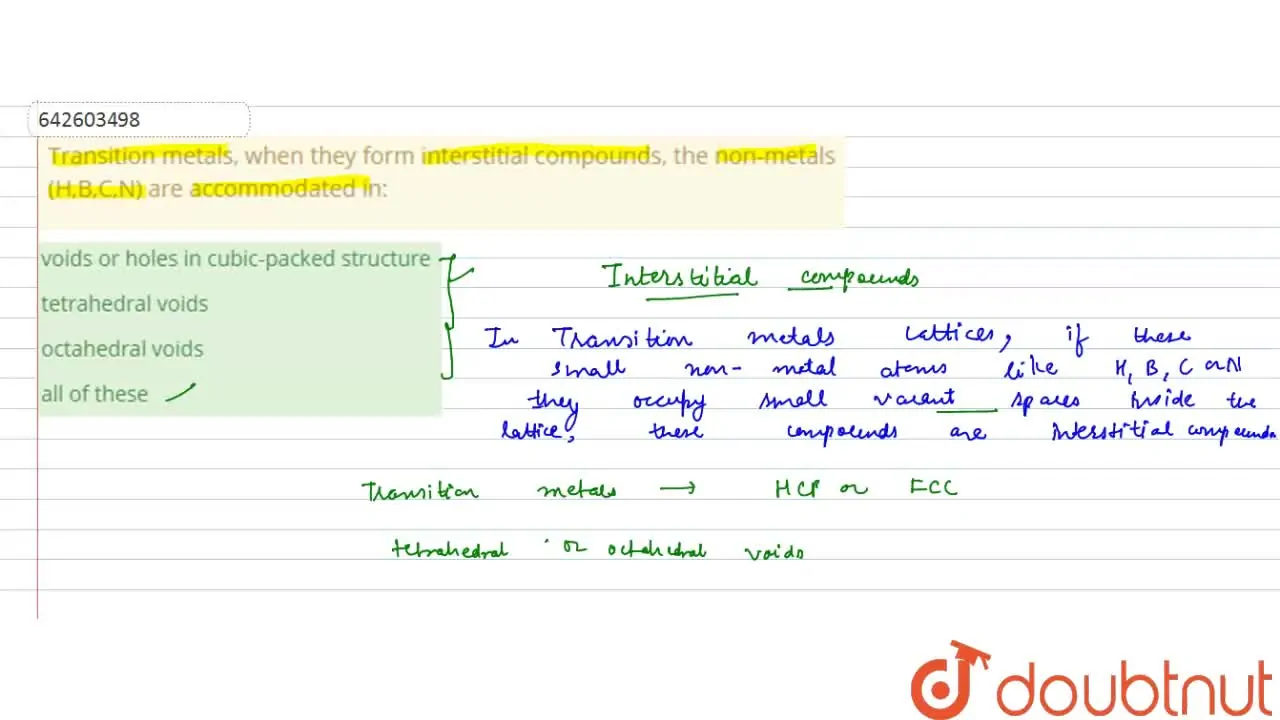 642603498
Transition metals, when they form interstitial compounds, the non-metals
(H,B,C,N) are accommodated in:
voids or holes in cubic-packed structure
tetrahedral voids
octahedral voids
all of these
Interstitial compounds
In Transition metals lattices, if these
small non-metal atoms like H, B, C or N
they occupy small vacant spaces inside the
lattice, these compounds are interstitial compounds
Transition metals → HCP or FCC
tetrahedral or octahedral voids
doubtnut